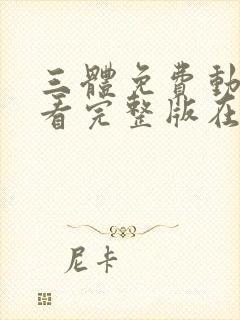 三體免費動
看完整版在
尼卡